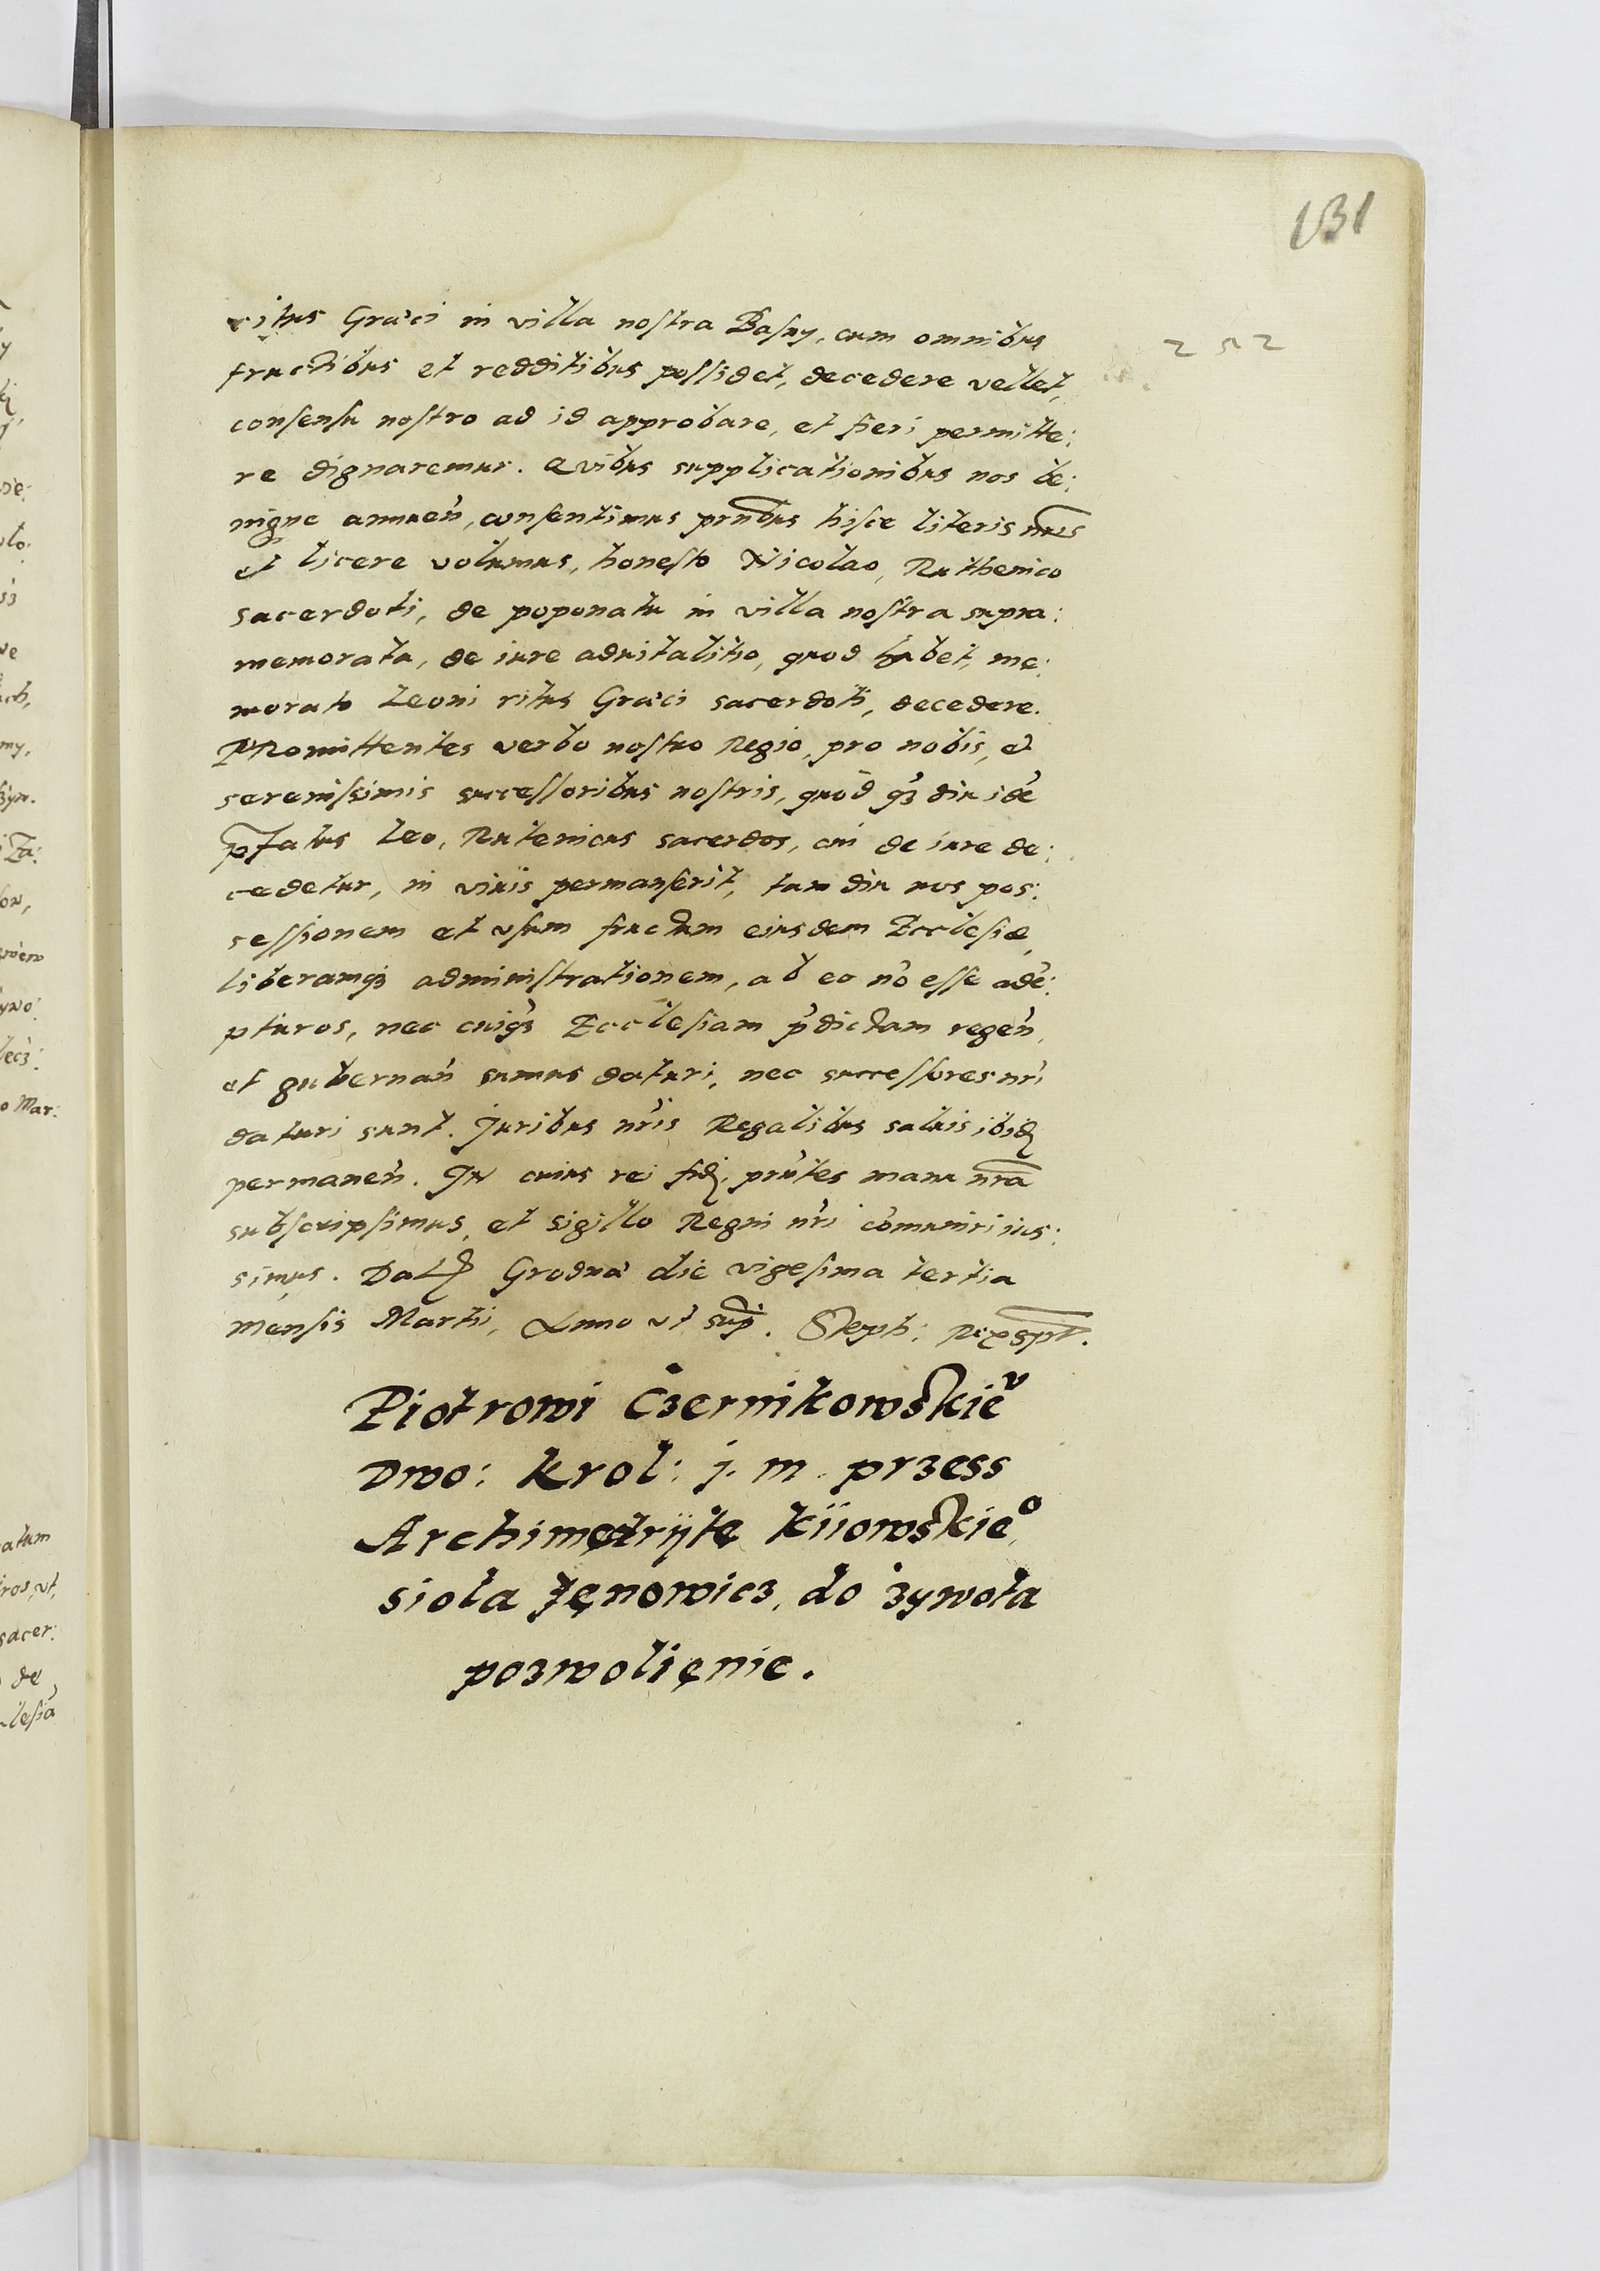 131
252
ritus Græci in villa nostra Basny, cum omnibus
fructibus et redditibus possidet, decedere vellet,
consensu nostro ad id approbare, et fieri permitte:
re dignaremur. Quibus supplicationibus nos be:
nigne annuen̄, consentimus prn̄tibus hisce literis nr̄is
et licere volumus, honesto Nicolao, Ruthenico
sacerdoti, de poponatu in villa nostra supra:
memorata, de iure aduitalitio, quod habet, me:
morato Leoni ritus Græci sacerdoti, decedere.
PRomittentes verbo nostro Regio, pro nobis, et
serenissimis successoribus nostris, quod qz diu idē
p̄fatus Leo, Rutenicus sacerdos, cui de iure de:
cedetur, in viuis permanserit, tam diu nos pos:
sessionem et vsum fructum eiusdem Ecclesiæ,
liberamqz administrationem, ab eo nō esse adē:
pturos, nec cuiqz Ecclesiam p̄dictam regen̄,
et gubernan̄ sumus daturi, nec successores nr̄i
daturi sunt. Juribus nr̄is Regalibus saluis ibidē
permanen̄. IN cuius rei fidē, prn̄tes manu nr̄a
subscripsimus, et sigillo Regni nr̄i cōmuniri ius:
simus. Dat Grodnæ die vigesima tertia
mensis Martii, Anno vt supͣ. Steph: Rex spt.
Piotrowi Czernikowskieᵛ
Dwo: Krol: j. m. przess
Archimętrÿtę kiiowskieº,
siola Zęnowicz, do zywota
pozwolięnie.